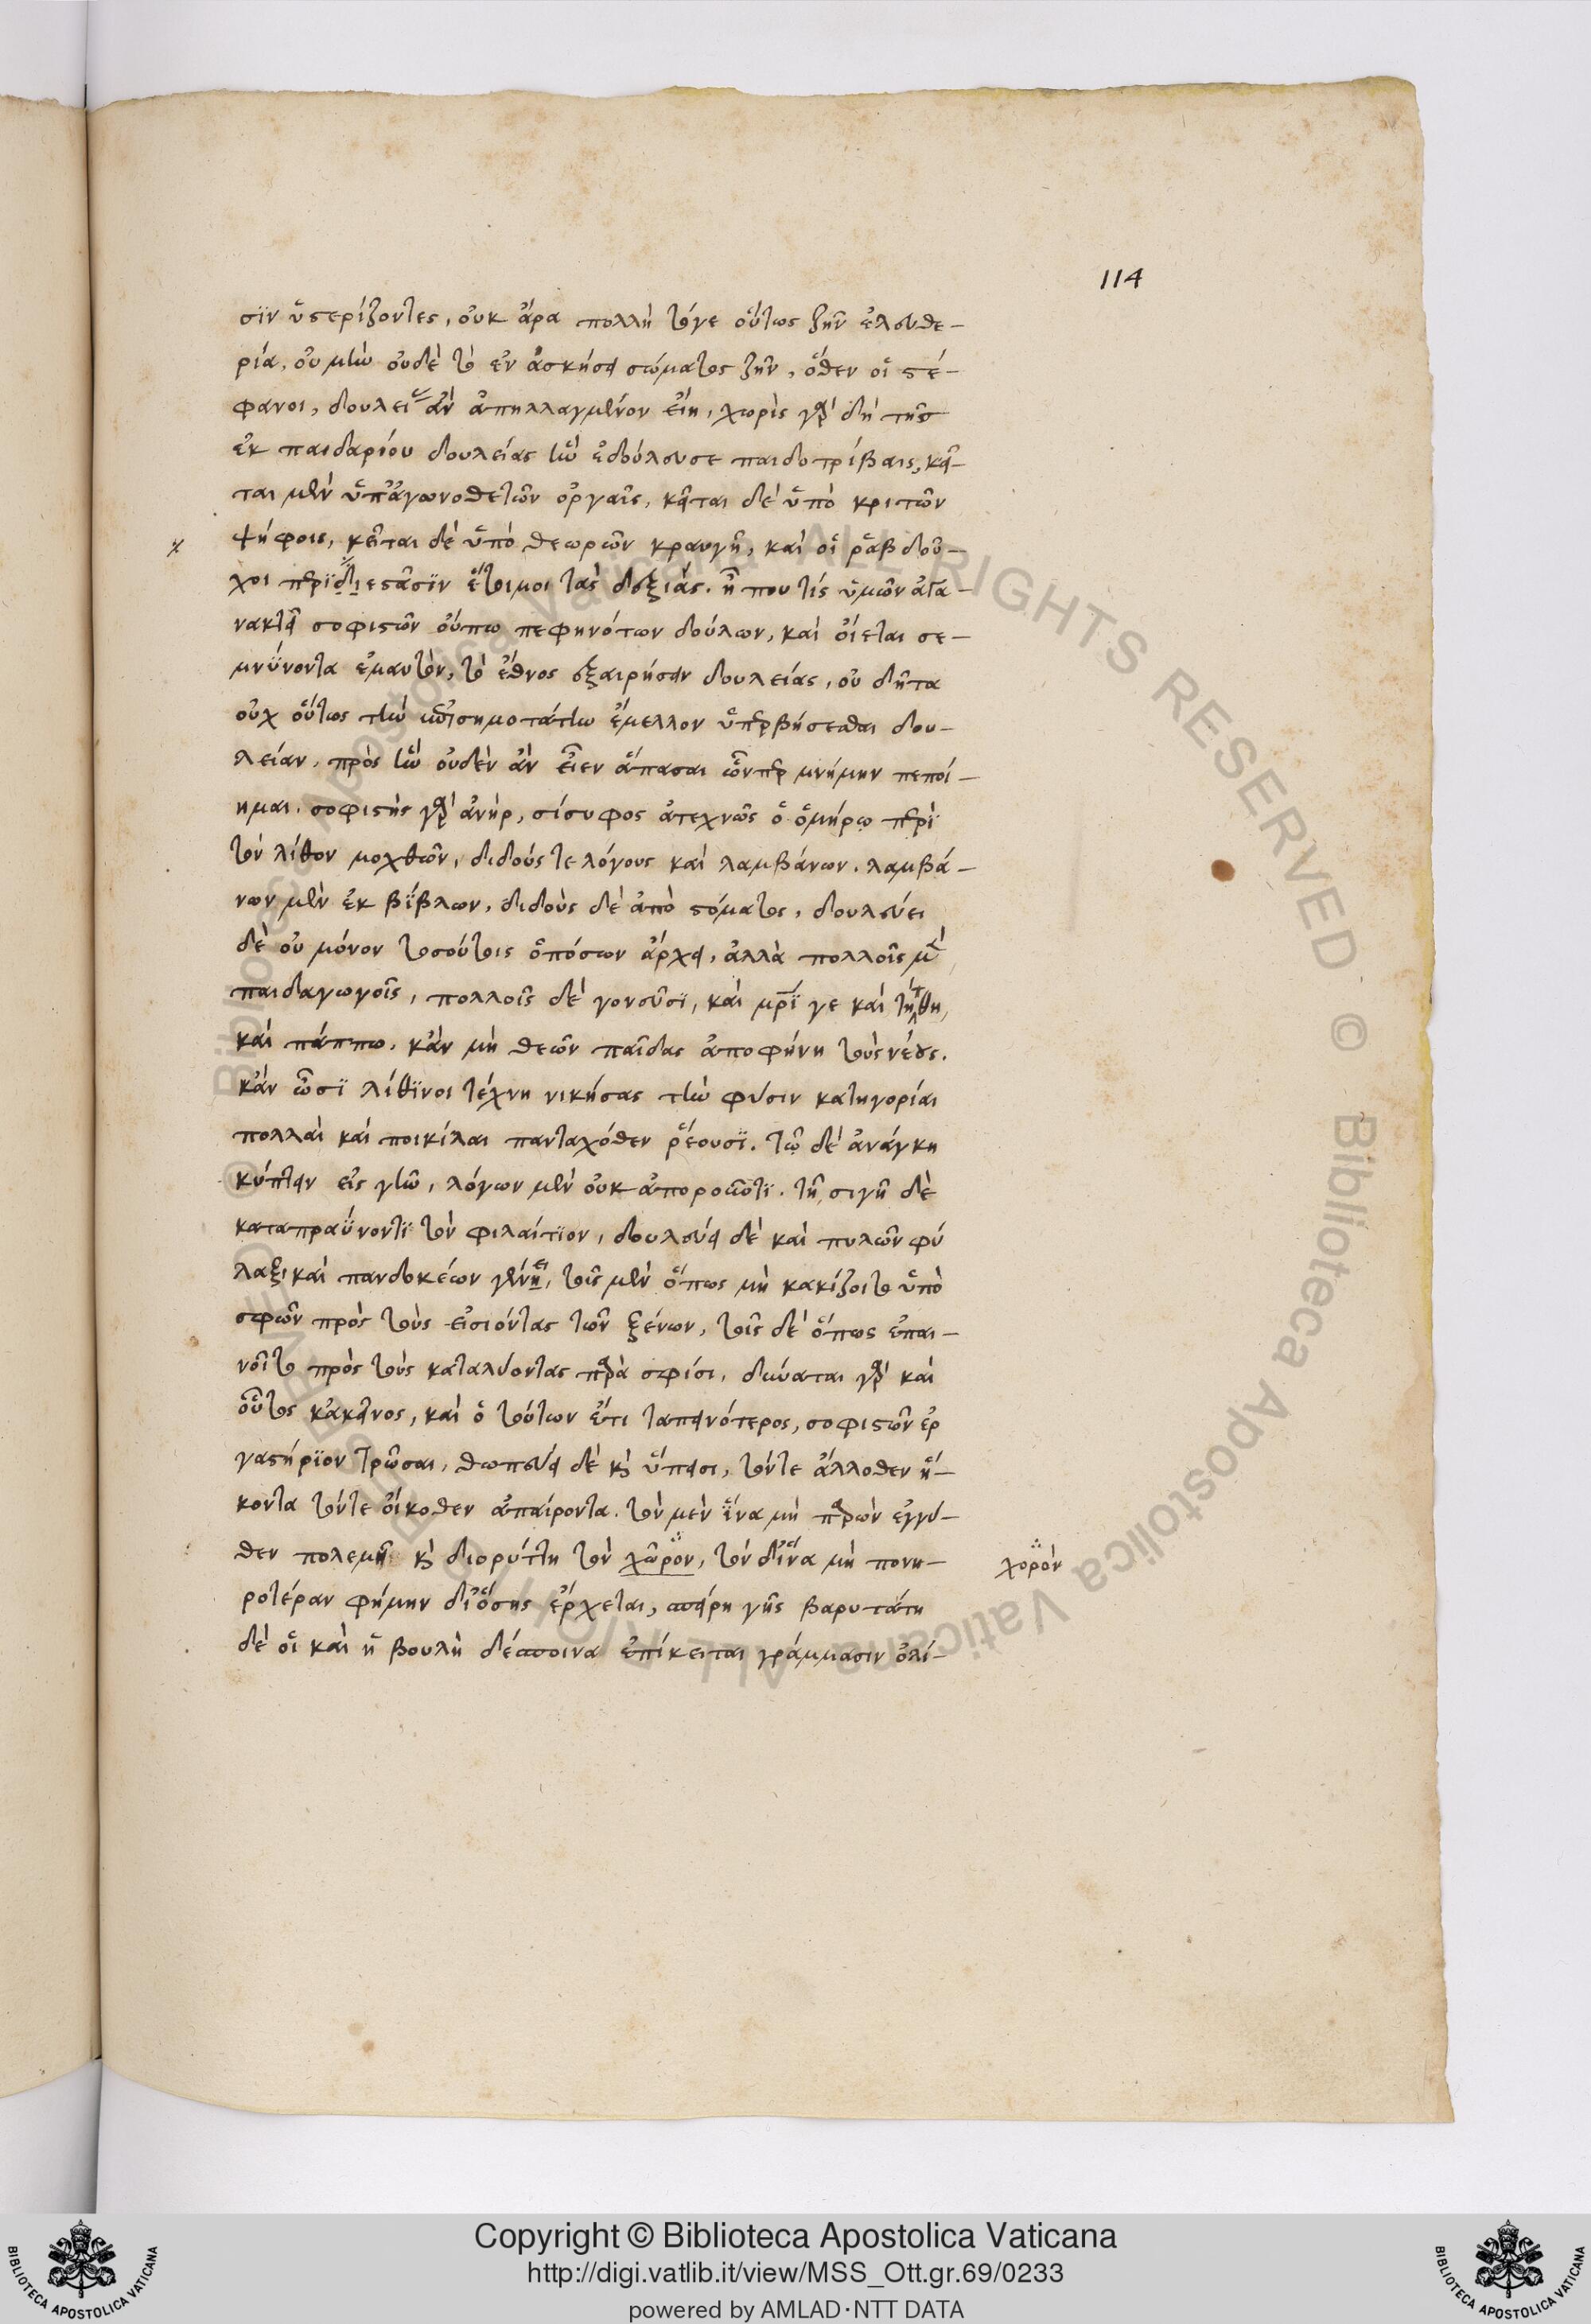 114
σϊν ὑστερίζοντες, οὐκ ἄρα πολλὴ τόγε οὕτως ζῆν ἐλευθε-
ρία. οὐ μὴν οὐδὲ τὸ ἐν ἀσκήσει σώματος ζῆν, ὅθεν οἱ στέ-
φανοι, δουλείας ἂν ἀπηλλαγμένον εἴη, χωρὶς γὰρ δὴ τῆς
ἐκ παιδαρίου δουλείας ἣν ἐδούλευσε παιδοτρίβαις, κεῖ-
ται μὲν ὑπ' ἀγωνοθετῶν ὀργαῖς, κεῖται δὲ ὑπὸ κριτῶν
ψήφοις, κεῖται δὲ ὑπὸ θεωρῶν κραυγῇ, καὶ οἱ ῥαβδοῦ-
χοι περϊ εστᾶσϊν ἕτοιμοι τὰς δεξιάς. ἦ που τίς ὑμῶν ἀγα-
νακτεῖ σοφιστῶν οὔπω πεφηνότων δούλων, καὶ οἴεται σε-
μνΰνοντα ἐμαυτὸν, τὸ ἔθνος ἐξαιρήσειν δουλείας, οὐ δῆτα
οὐχ οὕτως τὴν ἐπισημοτάτην ἔμελλον ὑπερβήσεσθαι δου-
λείαν. πρὸς ἣν οὐδὲν ἂν εἶεν ἅπασαι ὧνπερ μνήμην πεποί-
ημαι. σοφιστὴς γὰρ ἀνὴρ, σίσυφος ἀτεχνῶς ὁ ὁμήρῳ περὶ
τὸν λίθον μοχθῶν, διδούς τε λόγους καὶ λαμβάνων. λαμβά-
νων μὲν ἐκ βίβλων, διδοὺς δὲ ἀπὸ στόματος, δουλεύει
δὲ οὐ μόνον τοσούτοις ὁπόσων ἄρχει, ἀλλὰ πολλοῖς μὲν
παιδαγωγοῖς, πολλοῖς δὲ γονεῦσϊ, καὶ μρϊ γε καὶ τήτθη,
καὶ πάππω. κἂν μὴ θεῶν παῖδας ἀποφήνη τοὺς νέους.
κἂν ὦσϊ λίθϊνοι τέχνη νικήσας τὴν φύσιν κατηγορίαι
πολλαὶ καὶ ποικίλαι πανταχόθεν ῥέουσϊ. τῷ δὲ ἀνάγκη
κύπτειν εἰς γῆν, λόγων μὲν οὐκ ἀποροῦντϊ. τῇ σιγῇ δὲ
καταπραΰνοντϊ τὸν φιλαίτϊον, δουλεύει δὲ καὶ πυλῶν φύ
λαξι καὶ πανδοκέων γένει, τοῖς μὲν ὅπως μὴ κακίζοιτο ὑπὸ
σφῶν πρὸς τοὺς εἰσιόντας τῶν ξένων, τοῖς δὲ ὅπως ἐπαι-
νοῖτο πρὸς τοὺς καταλύοντας παρὰ σφίσι. δύναται γὰρ καὶ
οὗτος κἀκεῖνος, καὶ ὁ τούτων ἔτι ταπεινότερος, σοφιστῶν ἐρ
γαστήρϊον τρῶσαι, θωπεύει δὲ καὶ ὕπεισι, τόντε ἄλλοθεν ἥ-
κοντα τόντε οἴκοθεν ἀπαίροντα. τὸν μὲν ἵνα μὴ παρὼν ἐγγύ-
θεν πολεμῇ καὶ διορύττη τὸν χῶρον, τὸν δ' ἵνα μὴ πονη-
χορὸν
ροτέραν φήμην δι' ὅσης ἔρχεται, σπείρη γῆς βαρυτάτη
δὲ οἱ καὶ ἡ βουλὴ δέσποινα ἐπίκειται γράμμασιν ὀλί-
Copyright © Biblioteca Apostolica Vaticana
http://digi.vatlib.it/view/MSS_Ott.gr.69/0233
powered by AMLAD·NTT DATA
BIBLIOTECA APOSTOLICA VATICANA
BIBLIOTECA APOSTOLICA VATICANA
© Biblioteca Apostolica Vaticana ALL RIGHTS RESERVED